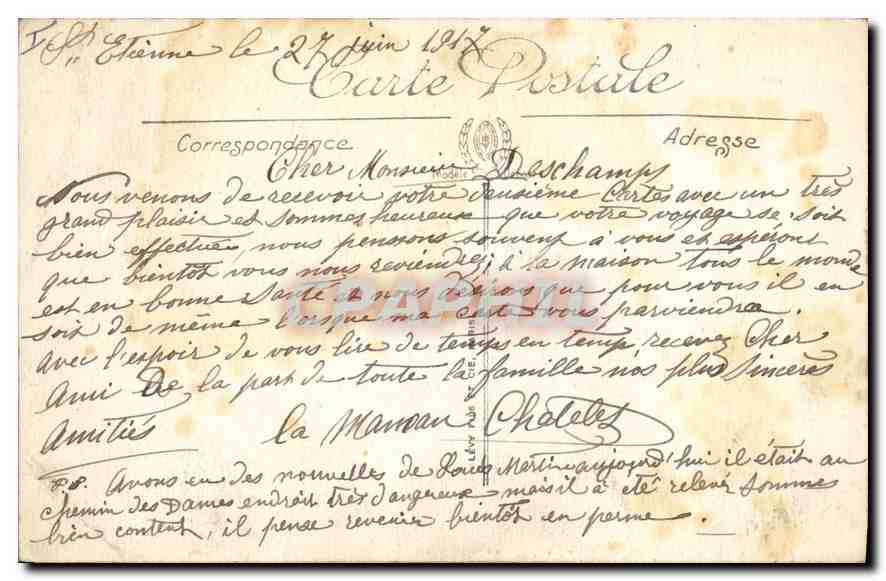 St Etienne le 27 juin 1917
Carte Postale
Correspondance
Adresse
Cher Monsieur Deschamps
Nous venons de recevoir votre deusième Cartes avec un très
grand plaisir et sommes heureux que votre voyage se soit
bien effectué, nous penssons souvent à vous et espéront
que bientôt vous nous reviendrez à la maison tous le monde
est en bonne santé et nous désirons que pour vous il en
soit de même lorsque ma carte vous parviendra
Avec l'espoir de vous lire de temps en temp recevez Cher
Ami de la part de toute la famille nos plus Sincères
Amitiés la Maman Chatelet
LÉVY FILS ET CIE, PARIS
P.S. Avons eu des nouvelles de Louis Martin aujojord'hui il était au
chemin des Dames endroit très dangereux mais il à été relever Sommes
bien content, il pense revenir bientôt en perme.